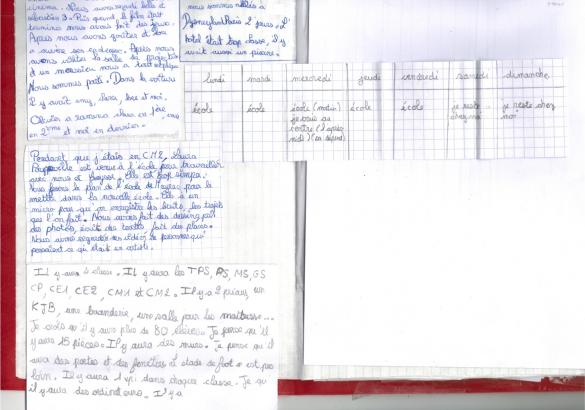 cinéma. Nous avons regardé belle et
sébastien 3. Puis quand le film était
terminé nous avons fait des jeux.
Après nous avons goûter et
a ouvre ses cadeaux. Après nous
avons visités la salle de projection
et un monsieur nous a tout expliqué
Nous sommes parti. Dans la voiture
il y avait Lena, Loïs et moi.
en 2ème et moi en dernier.
nous sommes allés à
Disneyland Paris 2 jours. L'
hotel était trop classe, il y
avait aussi un piscine.
lundi mardi mercredi jeudi vendredi samedi dimanche
école école école (matin) école école je reste je reste chez
je vais au chez moi moi
centre (l'après
midi)
Pendant que j'étais en CM2, Laura
est venue à l'école pour travailler
avec nous et Elle est trop sympa.
Nous ferons le plan de l'école de pour le
mettre dans la nouvelle école. Elle a un
micro pour qu'on enregistre les bruits, les trajets
que l'on fait. Nous avons fait des dessins, pris
des photos, écrits des textes, fait des plans.
Nous avons regardé en vidéo de personnes qui
Il y aura classe. Il y aura les TPS, PS, MS, GS
CP, CE1, CE2, CM1 et CM2. Il y a 2 préaux, un
KJB, une buanderie, une salle pour les maitresse...
Je crois qu'il y aura plus de 80 élèves. Je pense qu'il
y aura 15 pièces. Il y aura des murs. Je pense qu'il
aura des portes et des fenêtres. L' stade de foot est pas
loin. Il y aura 1 vpi dans chaque classe. Je
il y aura des ordinateurs. Il y a